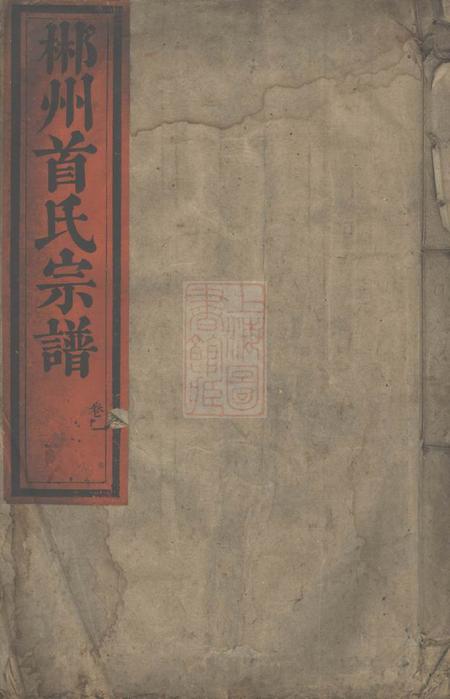 郴州首氏宗譜
卷
上海圖
書館藏